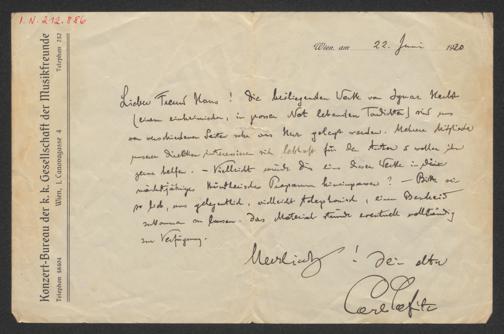 I.N. 212.886
Konzert-Bureau der k. k. Gesellschaft der Musikfreunde
Telephon 58604 Wien, I. Canovagasse 4 Telephon 252
Wien, am 22. Juni 1920
Lieber Freund Hans! Die beiliegenden Werke von Ignaz Herbst
(einem einheimischen, in grossen Not lebenden Tondichter) sind uns
von verschiedenen Seiten sehr ans Herz gelegt worden. Mehrere Mitglieder
unserer Direktion interessieren sich lebhaft für den Autor & wollen ihm
gerne helfen. – Vielleicht würde Dir eines dieser Werke in
nächstjähriges Programm hineinpassen? – Bitte sei
so lieb, uns gelegentlich, vielleicht telephonisch, einen Bescheid
zukommen zu lassen. Das Material stünde eventuell vollständig
zur Verfügung.
Herzlichst! Dein alter
Carl Lafite